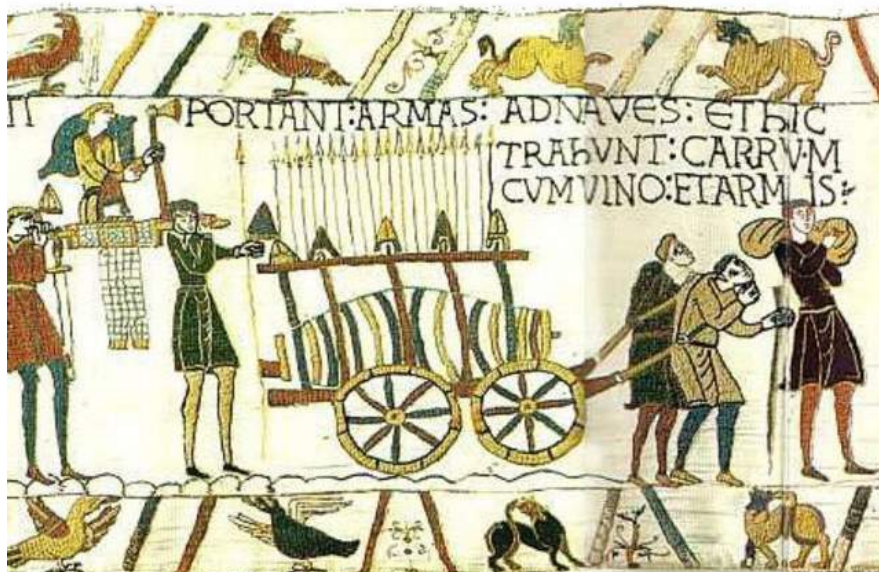 TI PORTANT:ARMAS: ADNAVES: EThIC
TRAhUNT: CARRUM
CVMVINO:ETARMIS: